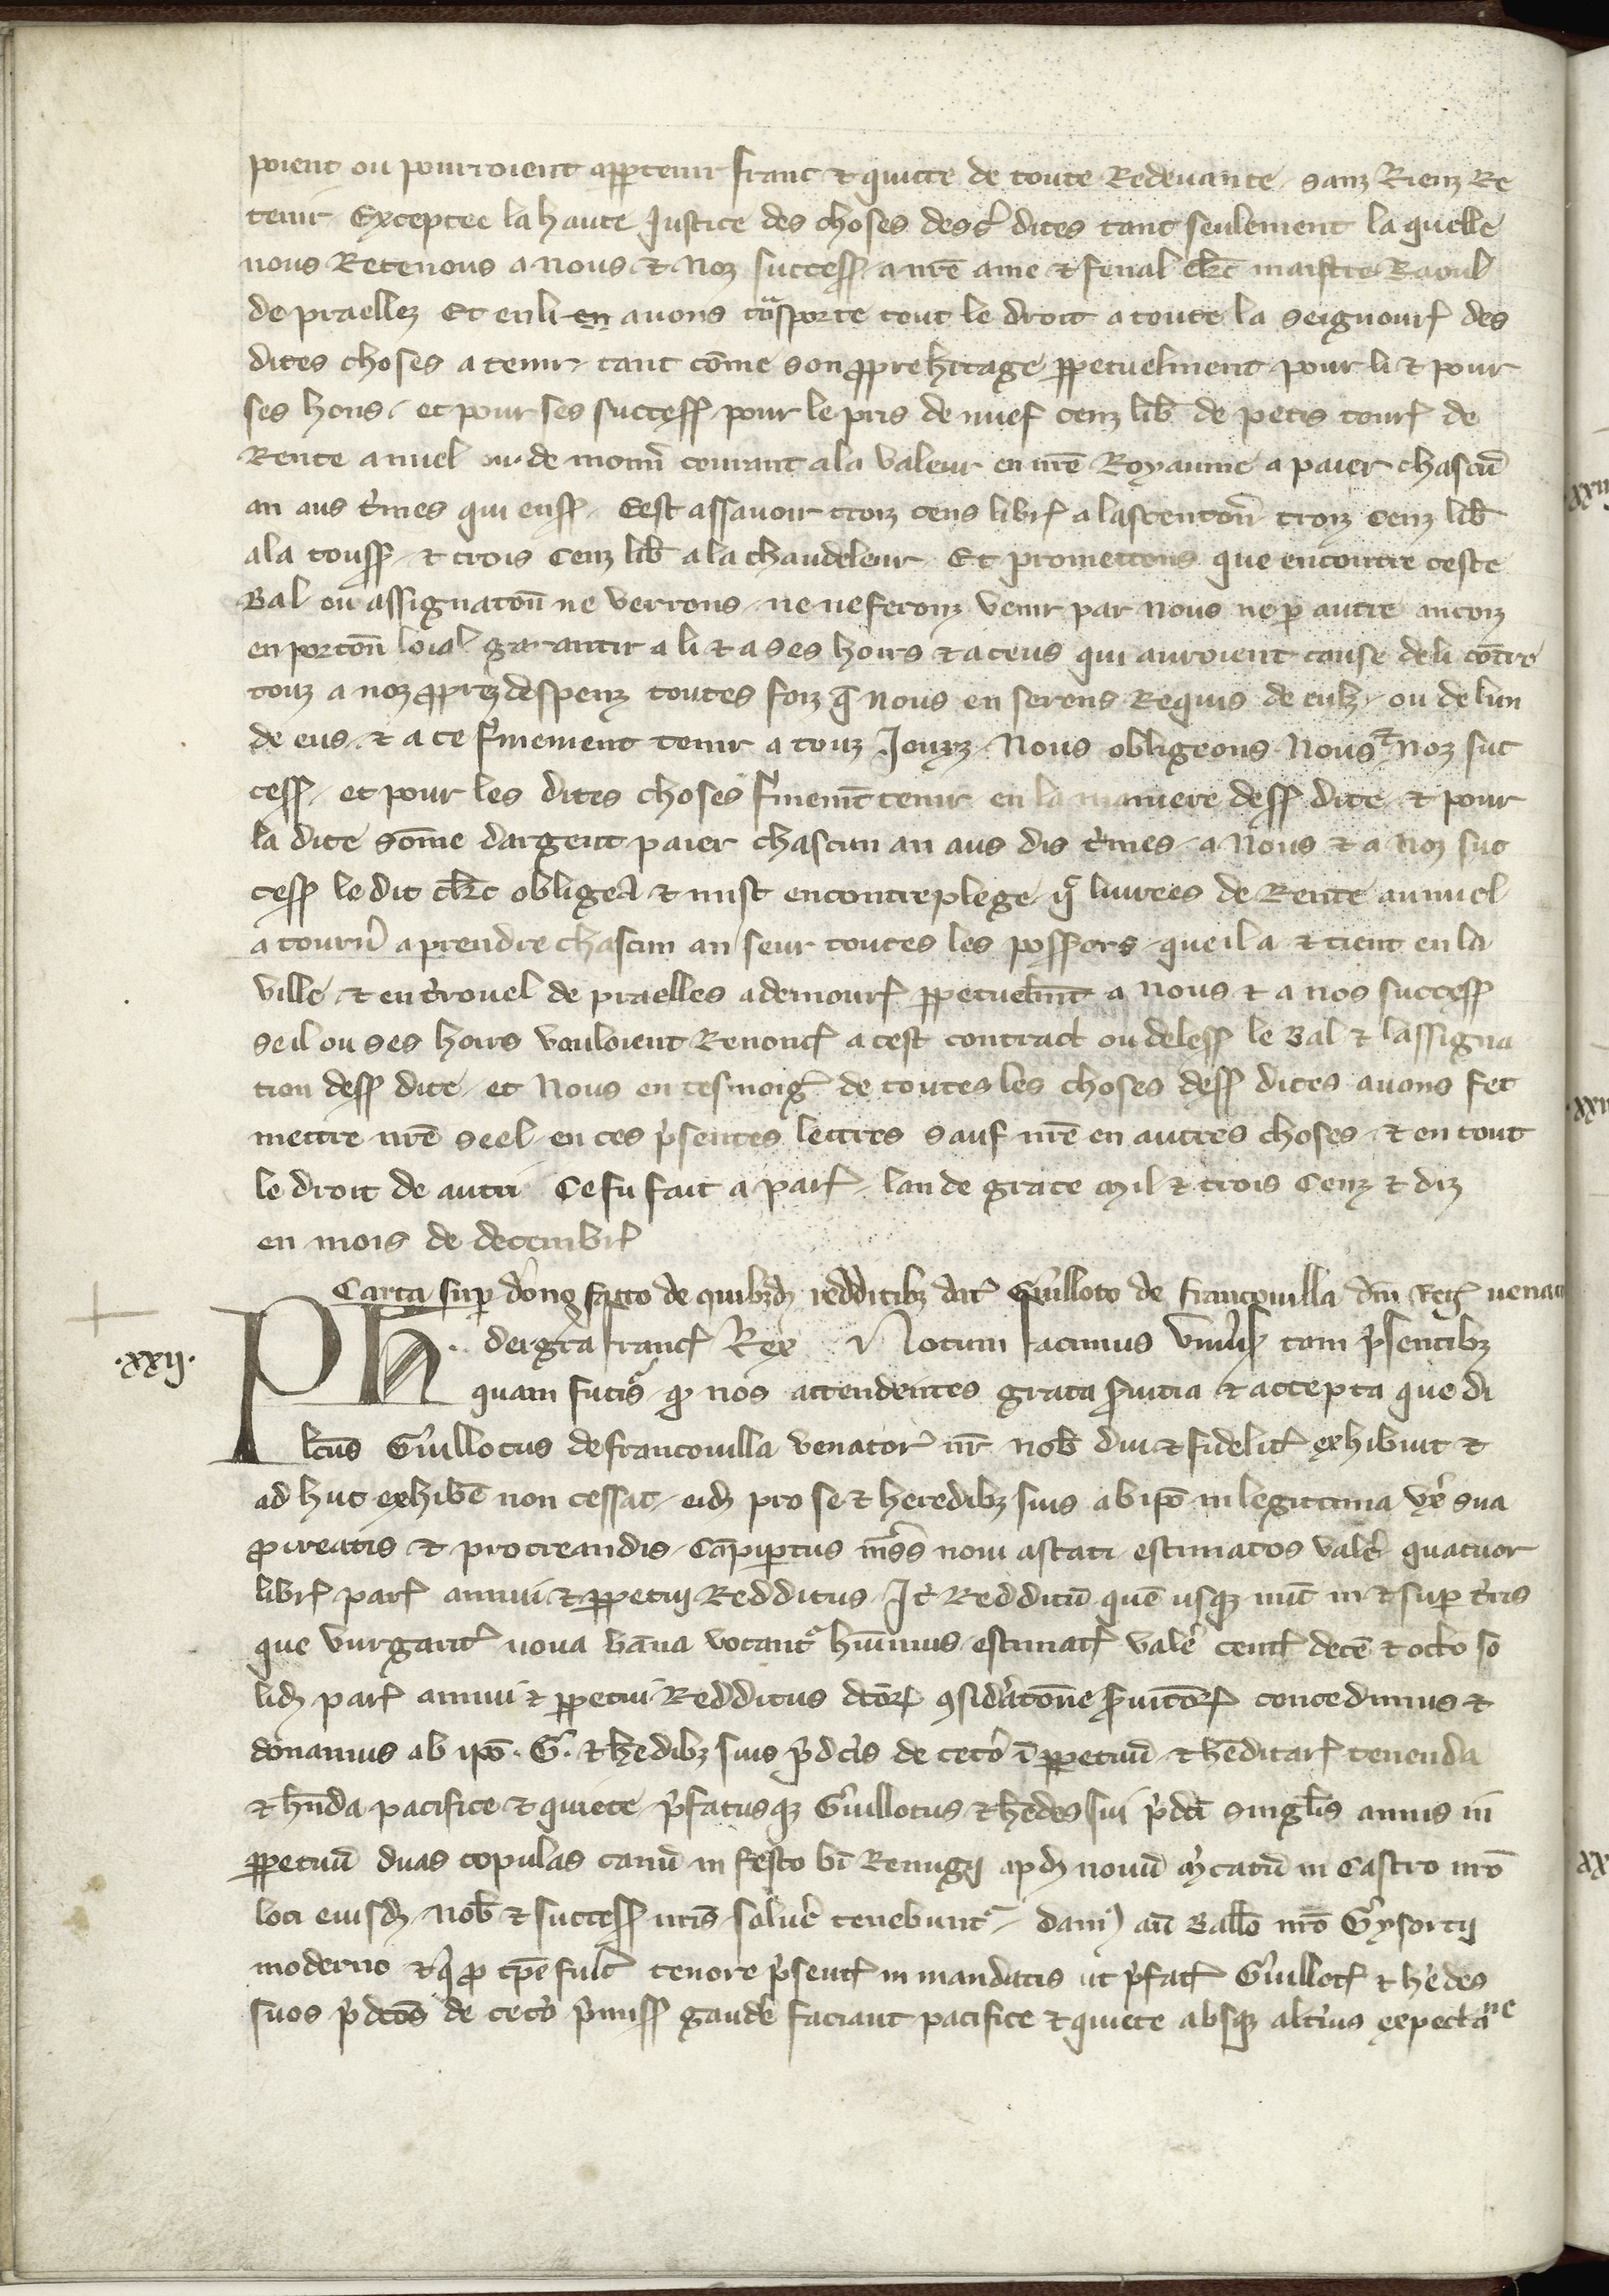 poient ou pourroient appartenir franc ⁊ quitte de toute Redevance sanz Rienz Re
tenir Exceptee la haute Justice des choses dess᷑ dites tant seulement la quelle
nous Retenons a nous ⁊ Noz success. a nr̄e ame ⁊ feual cler̄c maistre Raoul
de praellez Et en li en avons tn̄sporte tout le droit a toute la seignour᷑ des
dites choses a tenir tant cōme son ꝓpre h̄itage ꝑpetuelment pour li ⁊ pour
ses hons et pour ses success. pour le pris de nuef cenz lib̄ de petis tour᷑ de
Rente anuel ou de monn̄ courant a la valeur en nr̄e Royaume a paier chascū
an aus t̄mes qui enss. Cest assavoir troiz cens libr᷑ a lascention̄ troiz cenz lib̄
a la touss. ⁊ trois cenz lib̄ a la chandeleur Et promettons que encontre ceste
Bal ou assignacōn ne verrons ne ne feronz venir par nous ne ꝑ autre ancoiz
en portōn loial garantir a li ⁊ a ses hoirs ⁊ a ceus qui auroient cause de li cōtre
touz a noz ꝓprez despenz toutes foiz q̄ nous en serens Requis de eulz ou de lun
de eus ⁊ a ce f̄mement tenir a touz Jourz Nous obligeons Nous ⁊ Noz suc
cess. et pour les dites choses f̄memt̄ tenir en la maniere dess. dite ⁊ pour
la dite sōme dargent paier chascun an aus dis t̄mes a Nous ⁊ a Noz suc
cess. le dit cler̄c obligea ⁊ mist en contreplege livrees de Rente annuel
a tourn̄ a prendre chascun an seur toutes les possess que il a ⁊ tient en la
ville ⁊ en t̄rouel de praelles a demour᷑ ꝑpetuelmt̄ a Nous ⁊ a nos success.
se il ou ses hoirs vouloient Renonc᷑ a cest contract ou deless. le Bal ⁊ lassigna
tion dess. dite et Nous en tesmoig᷑ de toutes les choses dess. dites avons fet
mettre nr̄e seel en ces p̄sentes lettres sauf nr̄e en autres choses ⁊ en tout
le droit de autri Ce fu fait a par᷑ lan de grace mil ⁊ trois Cenz ⁊ diz
en mois de decembr᷑
Carta sup̄ dono facto de quibzdꝫ redditibꝫ dat᷑ Guilloto de francovilla dn̄i Reg᷑ venat
·xxij· Ph. dei gr̄a franc᷑ Rex Notum facimus Vniv̄s tam p̄sentibꝫ
quam futis̄ ꝙ nos attendentes grata s̄vitia ⁊ accepta que di
lcūs Guillotus de francovilla venator nr̄ nob̄ diu ⁊ fidelit᷑ exhibuit ⁊
ad huc exhibē non cessat eidꝫ pro se ⁊ heredibꝫ suis ab ip̄o in legittima vx̄e sua
ꝓcreatis ⁊ procreandis Campiptus nr̄os novi astati estimatos valē quatuor
libr᷑ par᷑ annui ⁊ ꝑpetuij Redditus It̄ Redditū quē usqꝫ nūc in ⁊ sup̄ t̄ris
que vurgarit᷑ nova bānia vocant᷑ hūimus estimat᷑ valē cent᷑ decē ⁊ octo so
lidꝫ par᷑ annui ⁊ ꝑpetui Redditus dcōr᷑ ꝯsidātōne s̄vitiōr᷑ concedimus ⁊
donamus ab ip̄o .G. ⁊ hedibꝫ suis p̄dcīs de cet̄o ī ꝑpetuū ⁊ hēditar᷑ tenenda
⁊ hn̄da pacifice ⁊ quiete p̄fatusqꝫ Guillotus ⁊ hēdes sui p̄dcī singl̄is annis in
ꝑpetuū duas copulas canū in festo bī Remigij apdꝫ novū m̄catū in Castro nr̄o
loci eiusdꝫ nob̄ ⁊ success. nr̄is solvē tenebunt᷑ Dam᷑ aūt Ballō nr̄o Gysortij
moderno ⁊ q̄ ꝓ tp̄e fuīt tenore p̄sent᷑ in mandatis ut p̄fat᷑ Guillot᷑ ⁊ hēdes
suos p̄dcōs de cet̄o p̄miss. gaudē faciant pacifice ⁊ quiete absqꝫ altius expectāne